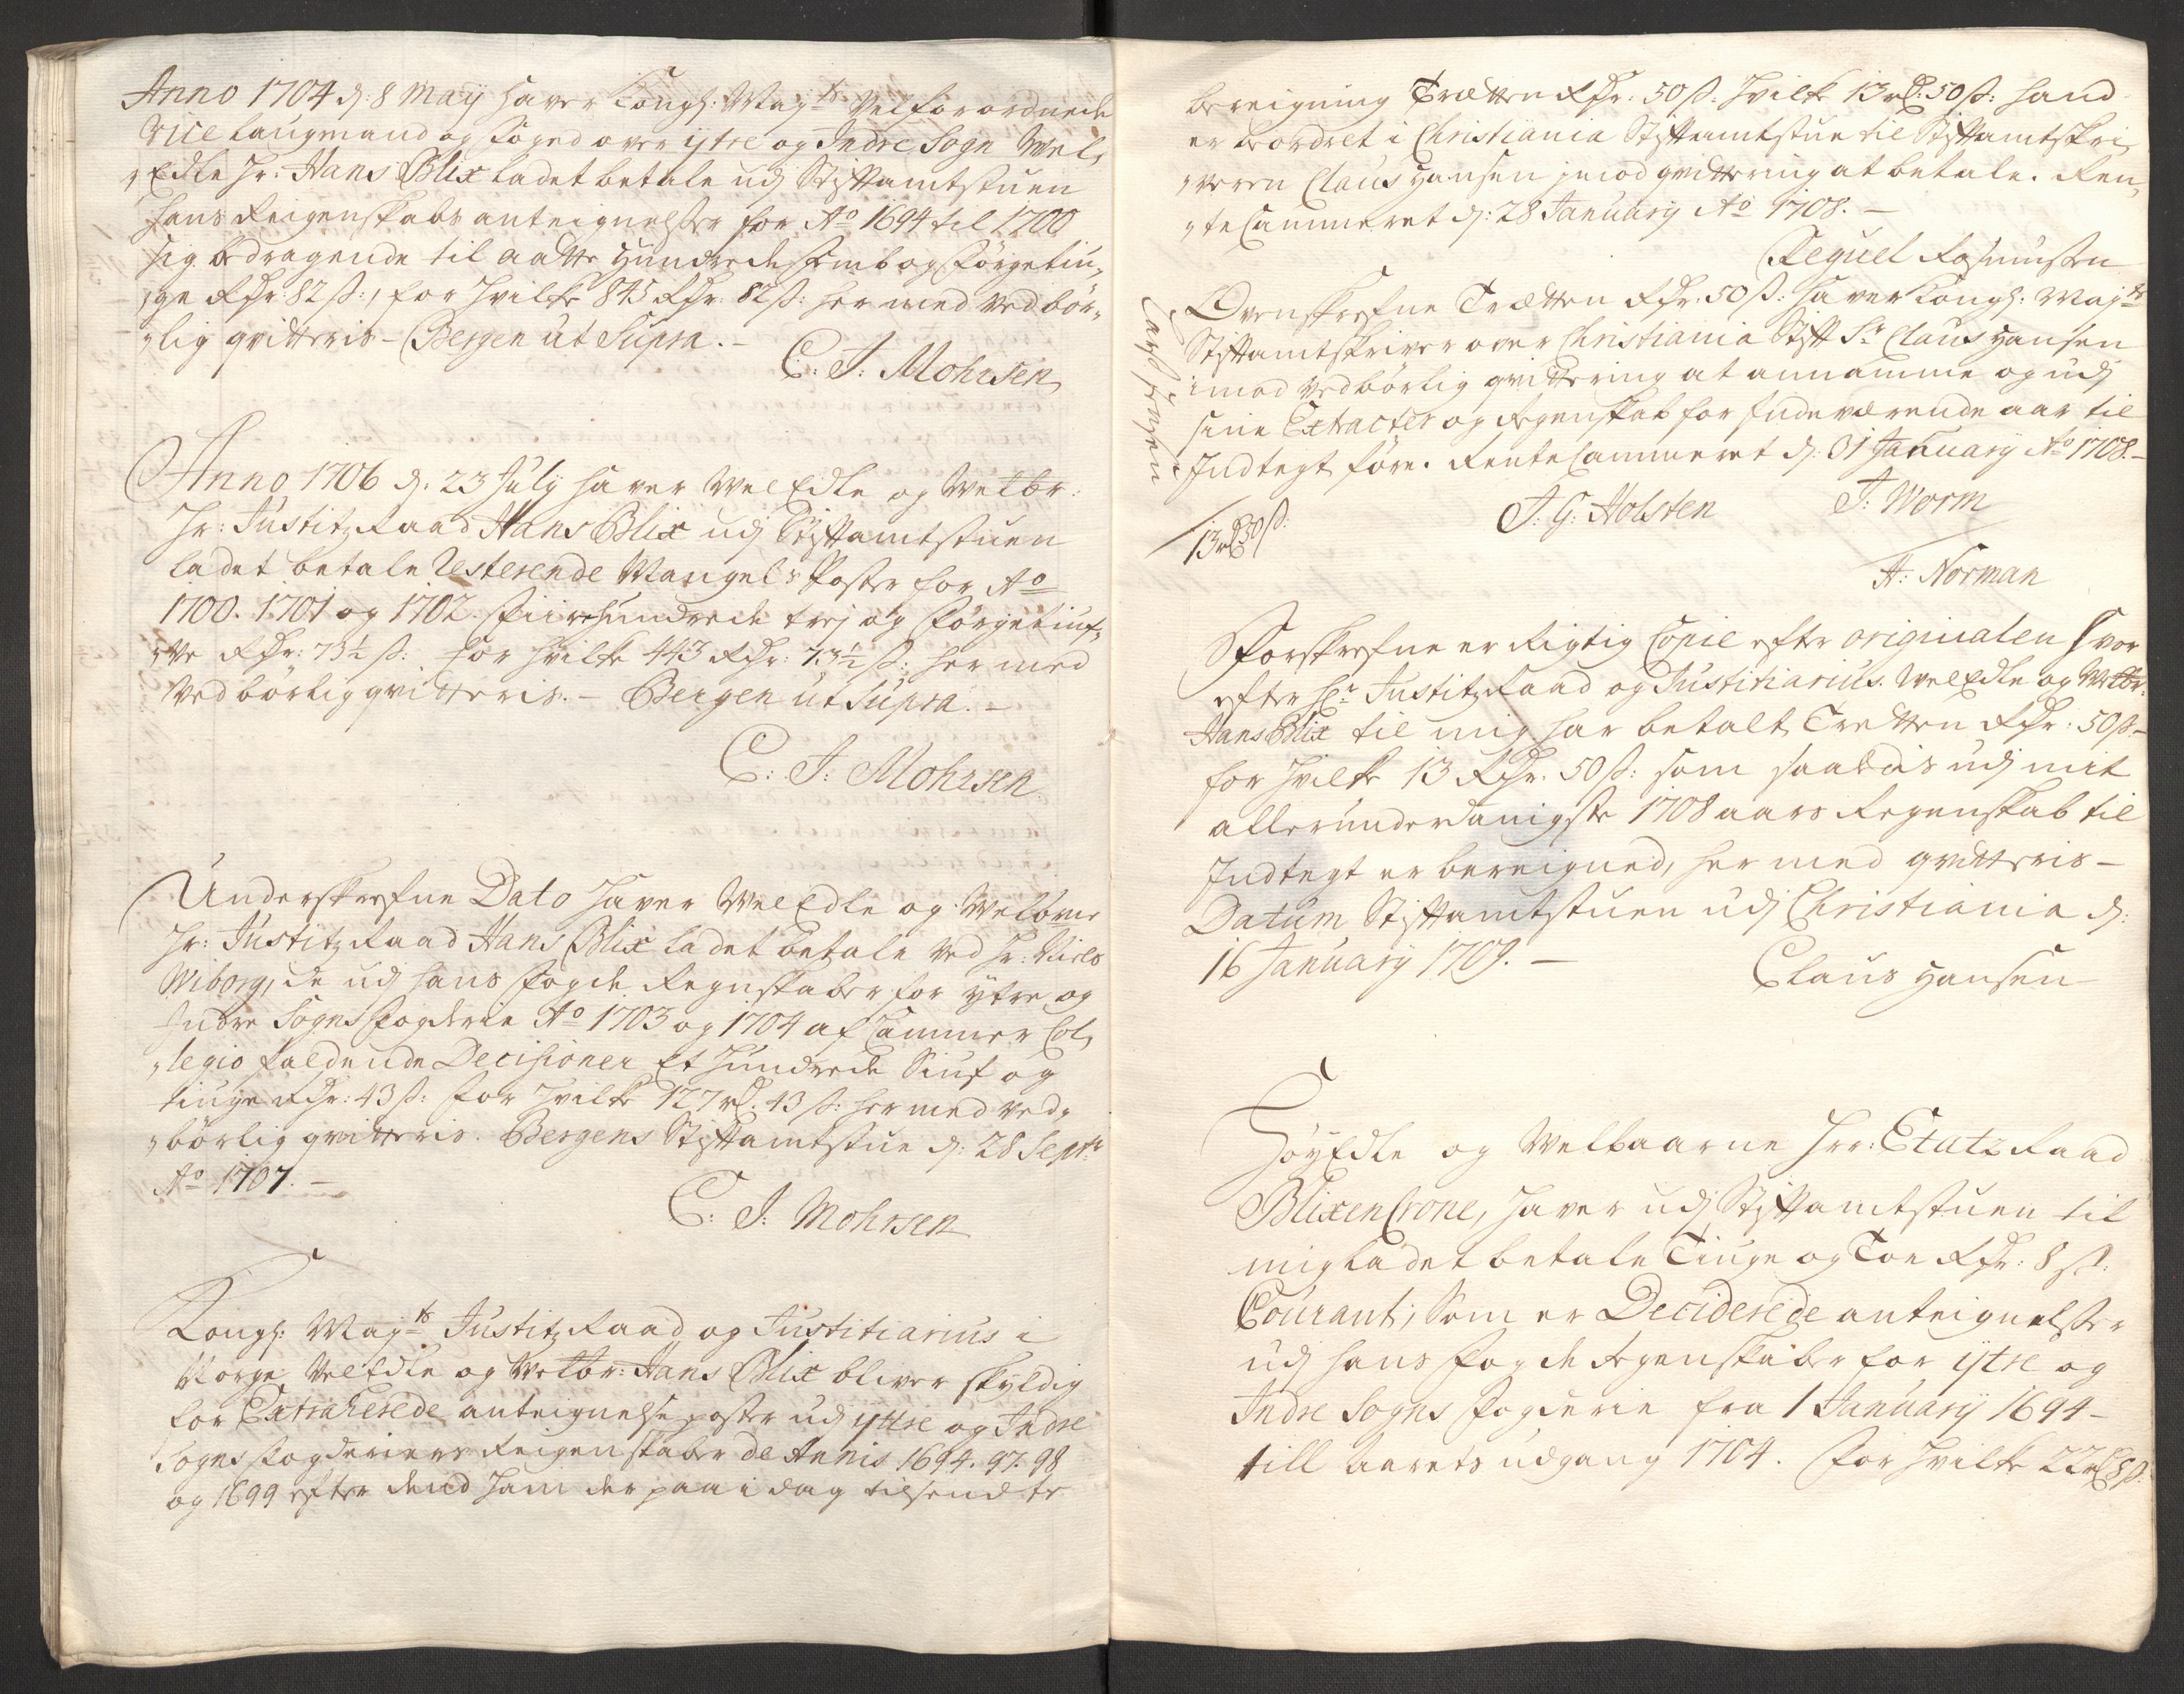 Anno 1704 d: 8 Maÿ haver Kongl: Maÿts Velforordnede
Vice Laugmand og foged over ÿtre og Indre Sogn Wel,
„Edle Hr: Hans Blix ladet betale udj Stiftamtstuen
hans Reigenskabs anteignelsser for Ao 1694 til 1700
sig bedragende til aatte Hundrede femb og förgetiu,
„ge Rdr: 82 ß:, for hvilke 845 Rdr: 82 ß: her med ved bör,
„lig qvitteris - Bergen ut Supra. -
C: J: Mohrsen
Anno 1706 d. 23 Julÿ haver Wel Edle og Welbr:
Hr: Justitz Raad Hans Blix udj Stiftamtstuen
ladet betale Resterende Mangels Poster for Ao
1700. 1701 og 1702. fiirehundrede trej og förgetiuf,
„ve Rdr: 73½ ß: for hvilke 443 Rdr: 73½ ß: her med
Ved börlig qvitteris. - Bergen ut Supra. -
C: J: Mohrsen
Underskrefne Dato haver Wel Edle og Welbrne
Hr: Justitz Raad Hans Blix ladet betale Ved Hr: Niels
Wiborg, de udj hans fogde Regnskaber for ÿtre og
Indre Sogns fogderie Ao 1703 og 1704 af Cammer Col,
„legio faldende Decisioner Et Hundrede Siuf og
tiuge Rdr: 43 ß: for hvilke 127 rd. 43 ß: her med ved,
„börlig qvitteris. Bergens Stiftamtstue d: 28 Septr:
Ao 1707. -
C: J: Mohrsen
Kongl: Maÿts Justitz Raad og Justitiarius i
Norge Vel Edle og Welbr: Hans Blix bliver skÿldig
for Extraherede anteignelse poster udj ÿttre og Indre
Sogns fogderiers Reigenskaber de Annis 1694. 97. 98
og 1699 efter dend ham der paa i dag tilsendte
bereigning Trætten Rdr: 50 ß: hvilke 13 rd: 50 ß: hand
er beordret i Christiania Stiftamtstue til Stiftamtskri,
„veren Claus Hansen jmod qvittering at betale. Ren,
„te Cammeret d: 28 Januarÿ Ao 1708. -
Requel Rasmussen
Ovenskrefne Trætten Rdr: 50 ß: haver Kongl: Maÿts
Stiftamtskriver over Christiania Stift Sr Claus Hansen
imod Vedbörlig qvittering at annamme og udj
sine Extracter og Regenskab for Indeværende aar til
Indtegt före. Rente Cammeret d: 31 Januarÿ Ao 1708. -
Lars Jensen
13 rd 50 ß:
J. G: Holsten
J: Worm
A: Norman
Forskrefne er Rigtig Copie efter originalen hvor
efter Hr: Justitz Raad og Justitiarius. Wel Edle og Welbr:
Hans Blix til mig har betalt Tretten Rdr: 50 ß -
for hvilke 13 Rdr: 50 ß: som saaledis udj mit
allerunderdanigste 1708 aars Regenskab til
Indtegt er bereigned, her med qvitteris -
Datum Stiftamtstuen udj Christiania d:
16 Januarÿ 1709. -
Claus Hansen
HöyEdle og Welbaarne Hrr: Etatz Raad
Blixencrone, haver udj Stiftamtstuen til
mig ladet betale Tiuge og Toe Rdr: 8 ß:
Courant; Som er Deciderede anteignelsser
udj hans fogde Regenskaber for ÿtre og
Indre Sogns fogderie fra 1 Januarÿ 1694 -
till Aarets udgang 1704. for hvilke 22 rd 8 ß: